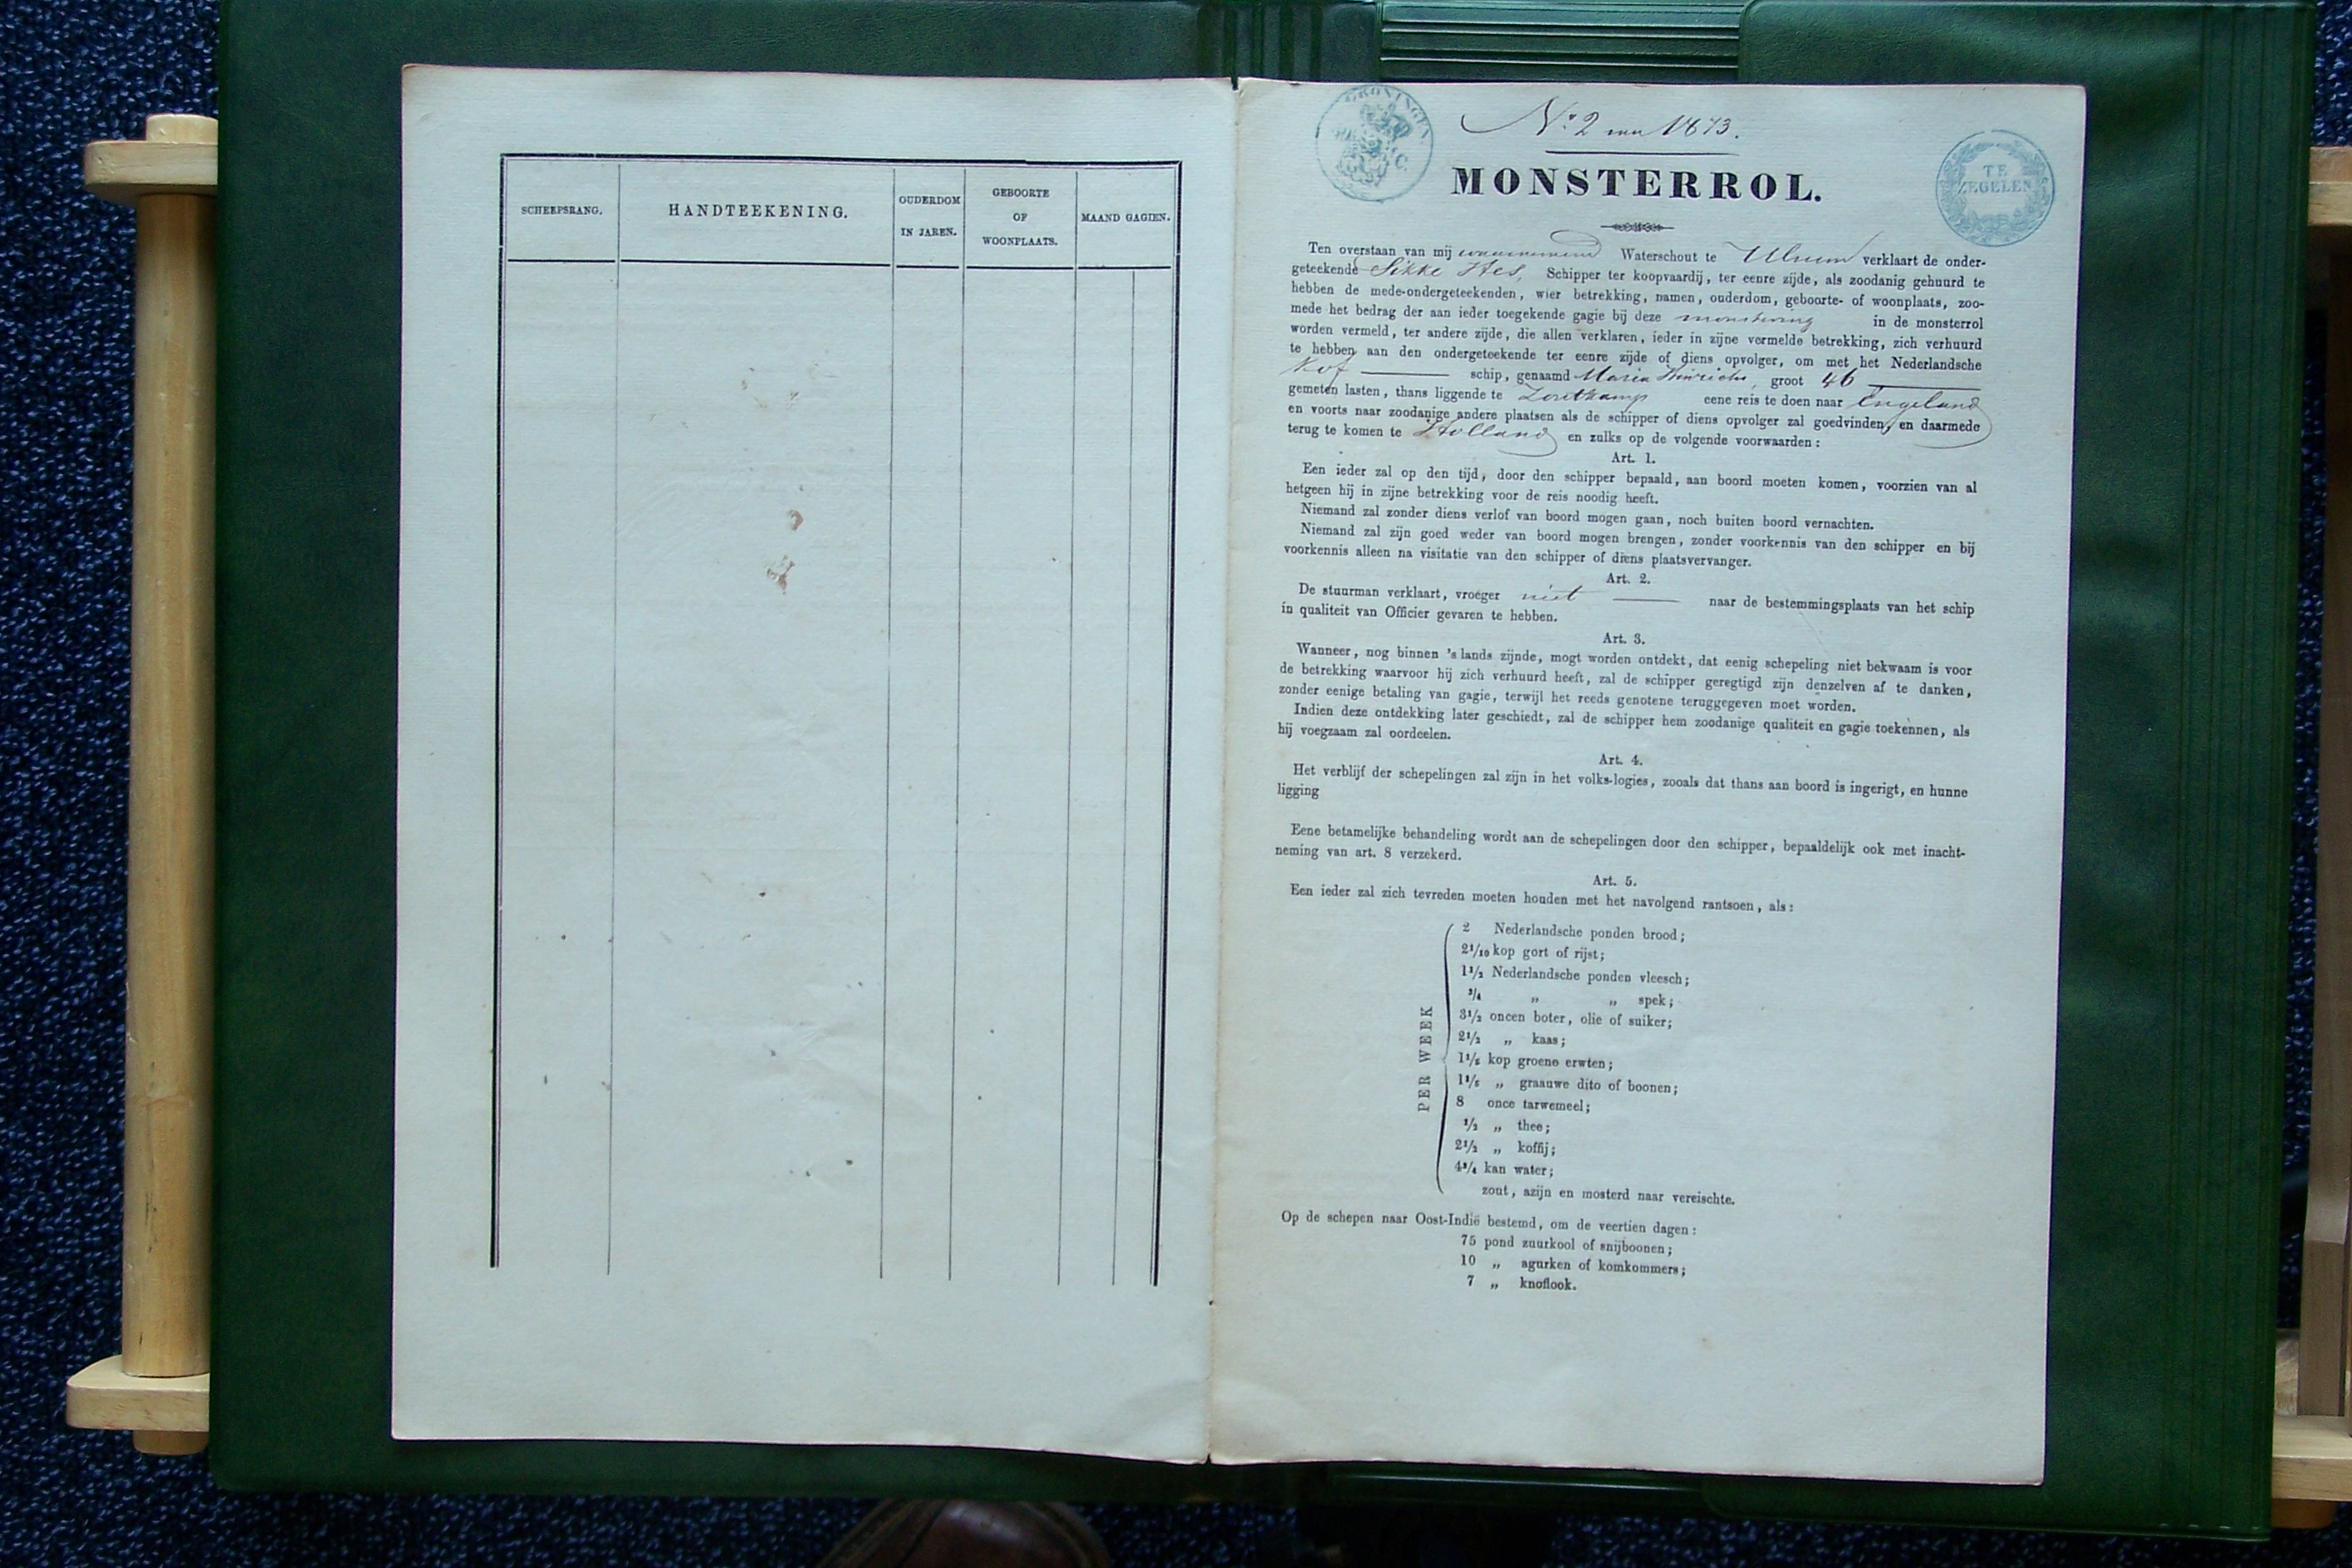 SCHEEPSRANG.
HANDTEEKENING.
OUDERDOM
IN JAREN.
GEBOORTE
OF
WOONPLAATS.
MAAND GAGIEN.
GRONINGEN
No. 2 van 1873.
TE
ZEGELEN
MONSTERROL.
Ten overstaan van mij waarnemend Waterschout te Ulrum verklaart de onder-
geteekende Sikke Hes, Schipper ter koopvaardij, ter eenre zijde, als zoodanig gehuurd te
hebben de mede-ondergeteekenden, wier betrekking, namen, ouderdom, geboorte- of woonplaats, zoo-
mede het bedrag der aan ieder toegekende gagie bij deze monstering in de monsterrol
worden vermeld, ter andere zijde, die allen verklaren, ieder in zijne vermelde betrekking, zich verhuurd
te hebben aan den ondergeteekende ter eenre zijde of diens opvolger, om met het Nederlandsche
Kof schip, genaamd Maria Hinrichs, groot 46
gemeten lasten, thans liggende te Zoutkamp eene reis te doen naar Engeland
en voorts naar zoodanige andere plaatsen als de schipper of diens opvolger zal goedvinden, en daarmede
terug te komen te Holland en zulks op de volgende voorwaarden:
Art. 1.
Een ieder zal op den tijd, door den schipper bepaald, aan boord moeten komen, voorzien van al
hetgeen hij in zijne betrekking voor de reis noodig heeft.
Niemand zal zonder diens verlof van boord mogen gaan, noch buiten boord vernachten.
Niemand zal zijn goed weder van boord mogen brengen, zonder voorkennis van den schipper en bij
voorkennis alleen na visitatie van den schipper of diens plaatsvervanger.
Art. 2.
De stuurman verklaart, vroeger niet naar de bestemmingsplaats van het schip
in qualiteit van Officier gevaren te hebben.
Art. 3.
Wanneer, nog binnen 's lands zijnde, mogt worden ontdekt, dat eenig schepeling niet bekwaam is voor
de betrekking waarvoor hij zich verhuurd heeft, zal de schipper geregtigd zijn denzelven af te danken,
zonder eenige betaling van gagie, terwijl het reeds genotene teruggegeven moet worden.
Indien deze ontdekking later geschiedt, zal de schipper hem zoodanige qualiteit en gagie toekennen, als
hij voegzaam zal oordeelen.
Art. 4.
Het verblijf der schepelingen zal zijn in het volks-logies, zooals dat thans aan boord is ingerigt, en hunne
ligging
Eene betamelijke behandeling wordt aan de schepelingen door den schipper, bepaaldelijk ook met inacht-
neming van art. 8 verzekerd.
Art. 5.
Een ieder zal zich tevreden moeten houden met het navolgend rantsoen, als:
PER WEEK
2 Nederlandsche ponden brood;
2 1/10 kop gort of rijst;
1 1/2 Nederlandsche ponden vleesch;
3/4 „ „ spek;
3 1/2 oncen boter, olie of suiker;
2 1/2 „ kaas;
1 1/5 kop groene erwten;
1 1/5 „ graauwe dito of boonen;
8 once tarwemeel;
1/2 „ thee;
2 1/2 „ koffij;
4 3/4 kan water;
zout, azijn en mosterd naar vereischte.
Op de schepen naar Oost-Indië bestemd, om de veertien dagen:
75 pond zuurkool of snijboonen;
10 „ agurken of komkommers;
7 „ knoflook.